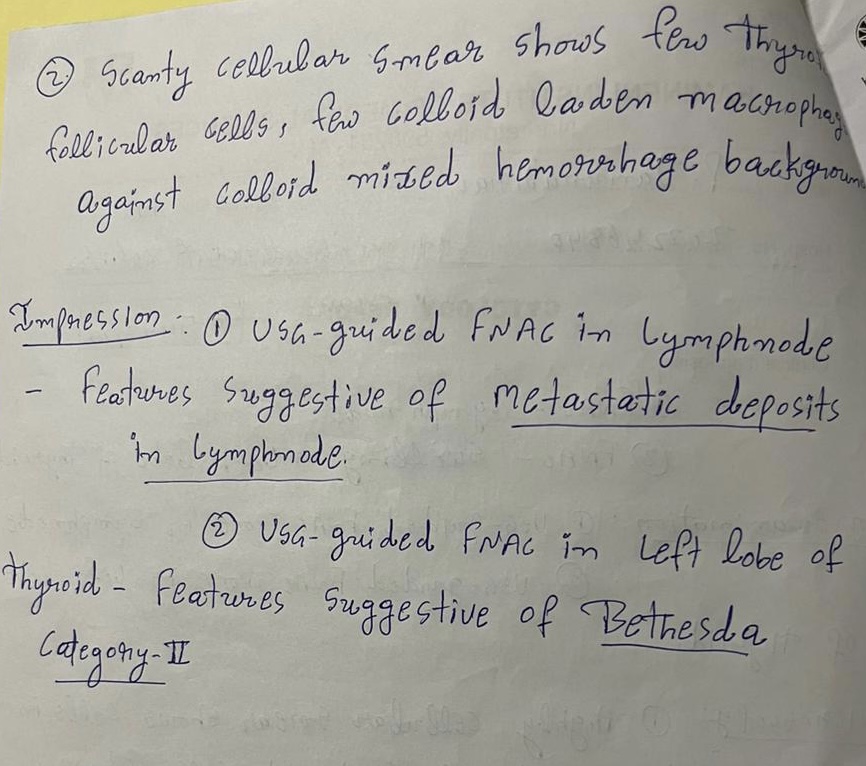 ② Scanty cellular smear shows few Thyro
follicular cells, few colloid laden macrophag
against colloid mixed hemorrhage backgroun
Impression: ① USG-guided FNAC in lymphnode
- features suggestive of metastatic deposits
in lymphnode.
② USG-guided FNAC in left lobe of
Thyroid - features suggestive of Bethesda
Category-II